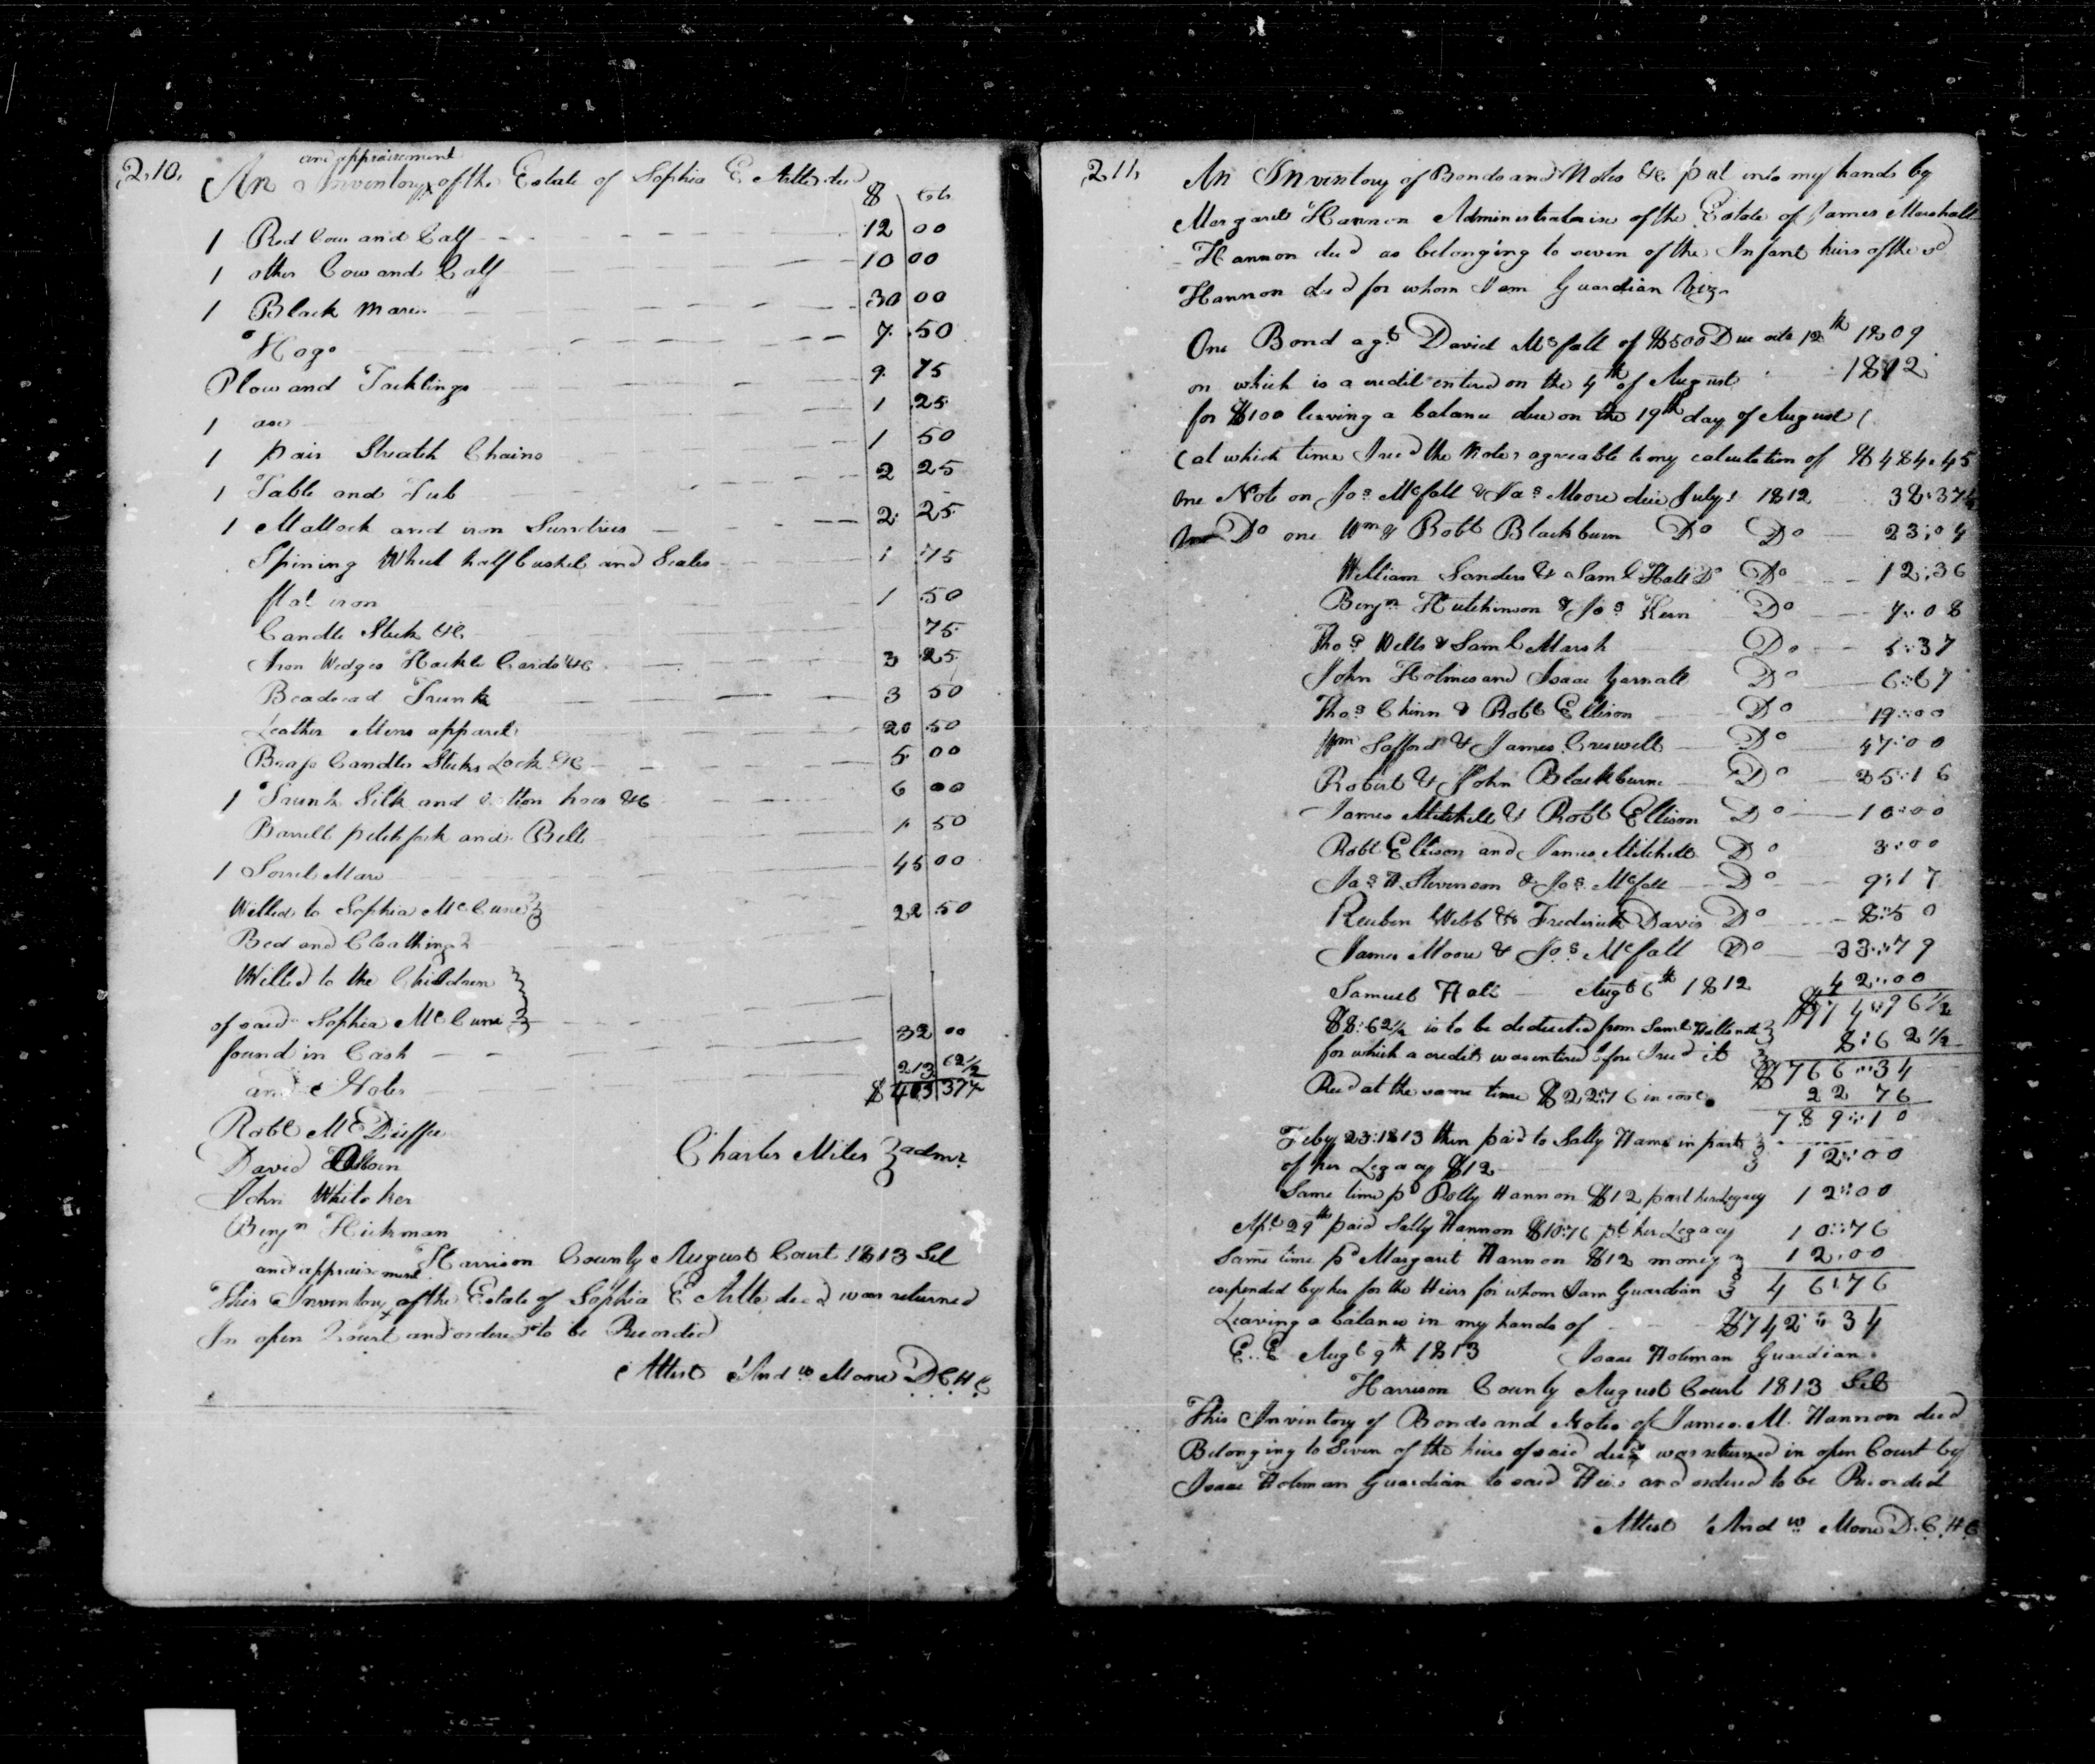 210.
and appraisement
An Inventory x of the Estate of Sophia E Artte decd
$ Cts
1 Red Cow and Calf 12 00
1 other Cow and Calf 10 00
1 Black Mare 30 00
Hogs 7 50
Plow and Tacklings 9 75
1 axe 1 25
1 pair Streatch Chains 1 50
1 Table and Tub 2 25
1 Mattock and iron Sundries 2 25
Spining Wheel half bushel and Scales 1 75
flat iron 1 50
Candle Stick &C 75
Iron Wedges Hackle Cards &C 3 25
Beadsead Trunk 3 50
Leather Mens apparel 20 50
Brass Candles Sticks Lock &C 5 00
1 Trunk Silk and Cotton hoes &C 6 00
Barrell pitchfork and Bell 1 50
1 Sorrel Mare 45 00
Willed to Sophia McCune
Bed and Cloathing 22 50
Willed to the Children
of said Sophia McCune
found in Cash 32 00
and Notes 213 62 1/2
$ 403 37
Robt McDuffe
David
John Whitaker
Benjn Hickman
Charles Miles admr
Harrison County August Court 1813 Sct
and appraisement
This Inventory x of the Estate of Sophia E Artte decd was returned
In open Court and ordered to be Recorded
Attest Andw Moore D.C.H.C
211.
An Inventory of Bonds and Notes &C put into my hands by
Margaret Hannon Administratrix of the Estate of James Marshall
Hannon decd as belonging to seven of the Infant heirs of the sd
Hannon decd for whom I am Guardian Viz.
One Bond agt David Mcfall of $500 Due octo 12th 1809
on which is a credit entered on the 4th of August 1812
for $100 leaving a balance due on the 19th day of August (
(at which time I recd the Notes agreable to my calculation of $484.45
One Note on Jos Mcfall & Jas Moore due July 1812 38:37½
Do one Wm & Robt Blackburn Do Do 23:04
William Sanders & Saml Hall Do Do 12:36
Benjn Hutchinson & Jos Kern Do 7:08
Thos Wells & Saml Marsh Do 5:37
John Holmes and Isaac Yarnall Do 6:67
Thos Chinn & Robt Ellison Do 19:00
Wm Safford & James Creswell Do 47:00
Robert & John Blackburn Do 35:16
James Mitchell & Robt Ellison Do 10:00
Robt Ellison and James Mitchell Do 3:00
Jas H Stevenson & Jos Mcfall Do 9:17
Reuben Webb & Frederick Davis Do 8:50
James Moore & Jos Mcfall Do 33:79
Samuel Hall Augt 6th 1812 42:00
$774:96½
$8:62½ is to be deducted from Saml Halls note
for which a credit was entered before I recd it 8:62½
$766:34
Recd at the same time $22:76 in cash 22 76
789:10
Feby 23:1813 then paid to Sally Hannon in part
of her Legacy $12 12:00
Same time pd Polly Hannon $12 part her Legacy 12:00
Apl 29th paid Sally Hannon $10:76 pt her Legacy 10:76
Same time pd Margaret Hannon $12 money 12:00
expended by her for the Heirs for whom I am Guardian 46:76
Leaving a balance in my hands of $742:34
E..E Augt 9th 1813 Isaac Holeman Guardian
Harrison County August Court 1813 Sct
This Inventory of Bonds and Notes of James M. Hannon decd
Belonging to Seven of the heirs of said decd was returned in open Court by
Isaac Holeman Guardian to said Heirs and ordered to be Recorded
Attest Andw Moore D.C.H.C